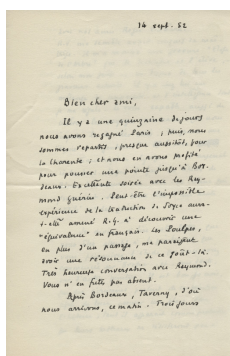 14 sept. 52
Bien cher ami,
Il y a une quinzaine de jours
nous avons regagné Paris ; puis, nous
sommes repartis, presque aussitôt, pour
la Charente ; et nous en avons profité
pour pousser une pointe jusqu'à Bor-
deaux. Excellente soirée avec les Ray-
mond Guérin. Peut-être l'impossible
expérience de la traduction de Joyce aura-
t-elle amené R.G. à découvrir une
"équivalence" en français. Les Poulpes,
en plus d'un passage, me paraissent
avoir une résonnance de ce goût-là.
Très heureuse conversation avec Raymond.
Vous n'en fûtes pas absent.
Après Bordeaux, Taverny, d'où
nous arrivons, ce matin. Trois jours